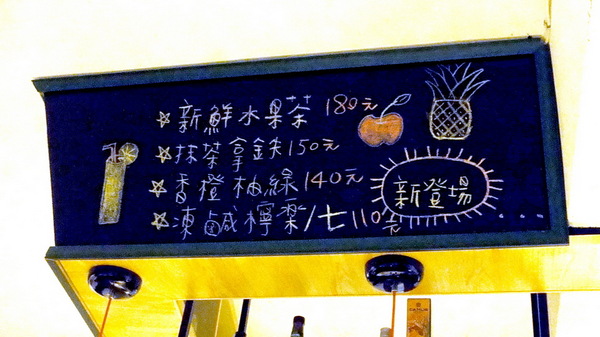 ☆新鮮水果茶 180元
☆抹茶拿鉄150元
☆香橙柚綠140元
☆凍鹹檸樂/七110元
新登場...